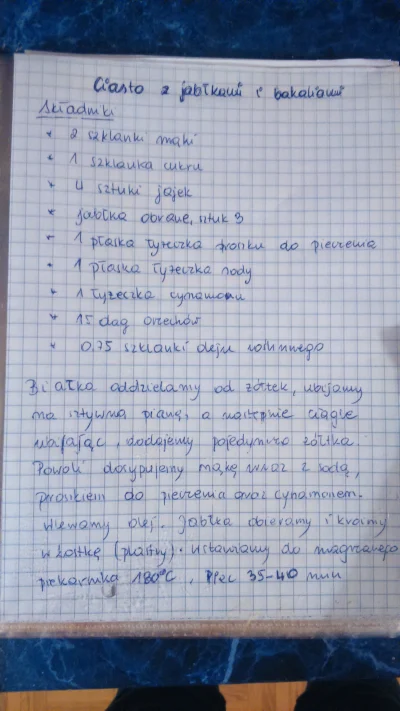 Ciasto z jabłkami i bakaliami
Składniki
* 2 szklanki mąki
* 1 szklanka cukru
* 4 sztuki jajek
* jabłka obrane, sztuk 3
* 1 płaska łyżeczka proszku do pieczenia
* 1 płaska łyżeczka sody
* 1 łyżeczka cynamonu
* 15 dag orzechów
* 0,75 szklanki oleju roślinnego
Białka oddzielamy od żółtek, ubijamy
na sztywną pianę, a następnie ciągle
ubijając, dodajemy pojedynczo żółtka.
Powoli dosypujemy mąkę wraz z sodą,
proszkiem do pieczenia oraz cynamonem.
Wlewamy olej. Jabłka obieramy i kroimy
w kostkę (plastry). Wstawiamy do nagrzanego
piekarnika 180°C, Piec 35-40 min